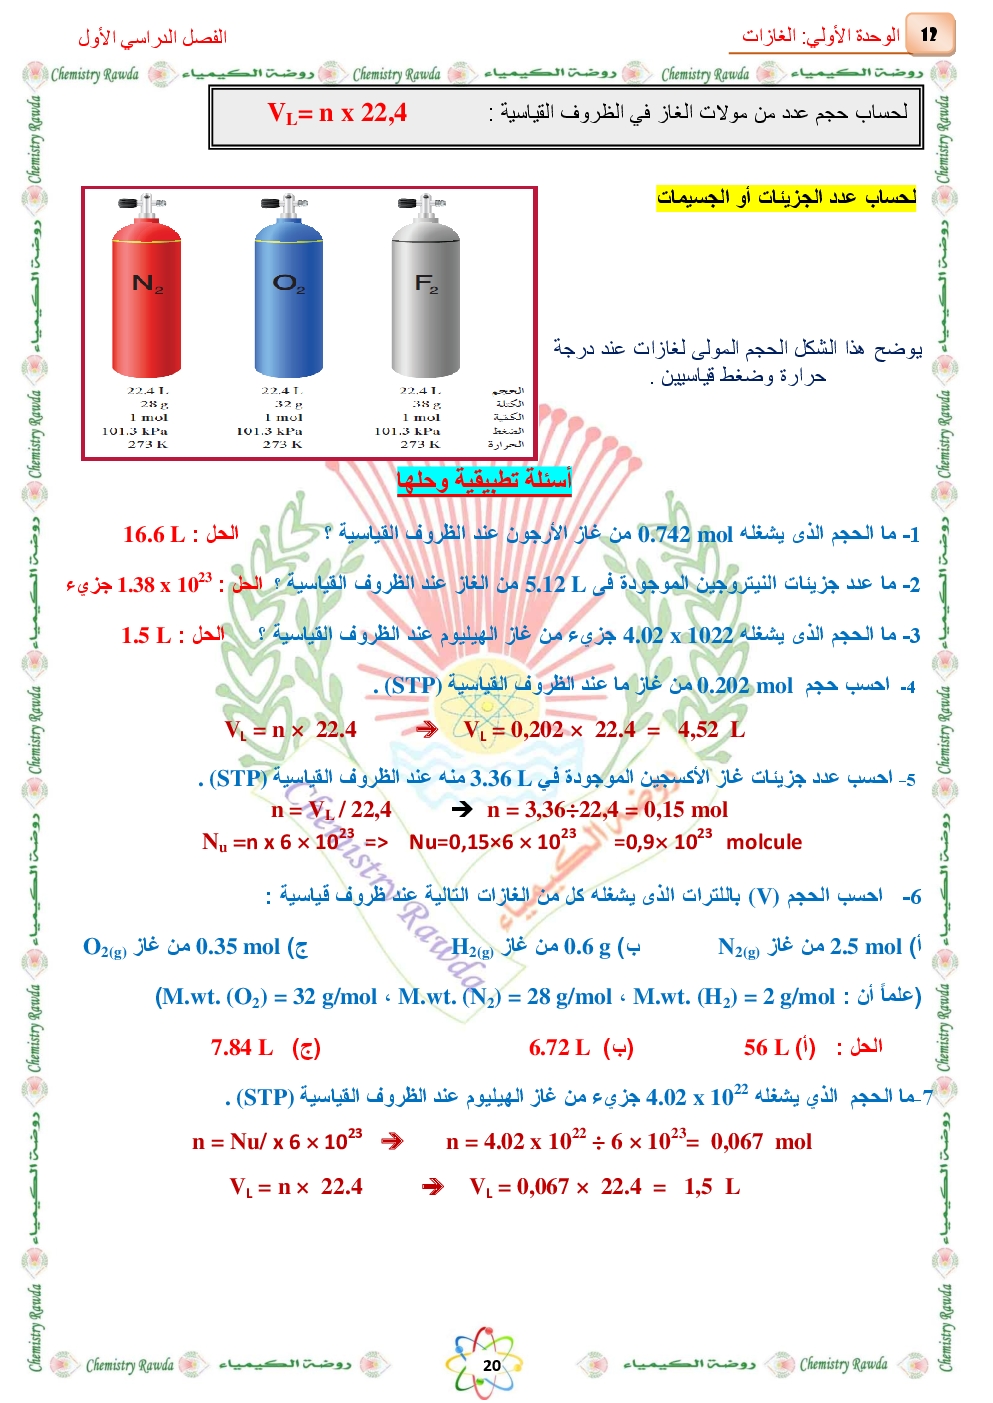 12 الوحدة الأولي: الغازات
الفصل الدراسي الأول
Chemistry Rawda روضة الكيمياء Chemistry Rawda روضة الكيمياء Chemistry Rawda روضة الكيمياء
لحساب حجم عدد من مولات الغاز في الظروف القياسية : V_L= n x 22,4
لحساب عدد الجزيئات أو الجسيمات
N₂ O₂ F₂
22.4 L 22.4 L 22.4 L الحجم
28 g 32 g 38 g الكتلة
1 mol 1 mol 1 mol الكمية
101.3 kPa 101.3 kPa 101.3 kPa الضغط
273 K 273 K 273 K الحرارة
يوضح هذا الشكل الحجم المولى لغازات عند درجة
حرارة وضغط قياسيين .
أسئلة تطبيقية وحلها
1- ما الحجم الذى يشغله 0.742 mol من غاز الأرجون عند الظروف القياسية ؟ الحل : 16.6 L
2- ما عدد جزيئات النيتروجين الموجودة فى 5.12 L من الغاز عند الظروف القياسية ؟ الحل : 1.38 x 10²³ جزيء
3- ما الحجم الذى يشغله 4.02 x 1022 جزيء من غاز الهيليوم عند الظروف القياسية ؟ الحل : 1.5 L
4- احسب حجم 0.202 mol من غاز ما عند الظروف القياسية (STP) .
V_L = n × 22.4 ➔ V_L = 0,202 × 22.4 = 4,52 L
5- احسب عدد جزيئات غاز الأكسجين الموجودة في 3.36 L منه عند الظروف القياسية (STP) .
n = V_L / 22,4 ➔ n = 3,36÷22,4 = 0,15 mol
N_u =n x 6 × 10²³ => Nu=0,15×6 × 10²³ =0,9× 10²³ molcule
6- احسب الحجم (V) باللترات الذى يشغله كل من الغازات التالية عند ظروف قياسية :
أ) 2.5 mol من غاز N₂(g) ب) 0.6 g من غاز H₂(g) ج) 0.35 mol من غاز O₂(g)
(علماً أن : M.wt. (H₂) = 2 g/mol ، M.wt. (N₂) = 28 g/mol ، M.wt. (O₂) = 32 g/mol)
الحل : (أ) 56 L (ب) 6.72 L (ج) 7.84 L
7-ما الحجم الذي يشغله 4.02 x 10²² جزيء من غاز الهيليوم عند الظروف القياسية (STP) .
n = Nu/ x 6 × 10²³ ➔ n = 4.02 x 10²² ÷ 6 × 10²³= 0,067 mol
V_L = n × 22.4 ➔ V_L = 0,067 × 22.4 = 1,5 L
روضة الكيمياء
Chemistry Rawda
Chemistry Rawda روضة الكيمياء 20 روضة الكيمياء Chemistry Rawda